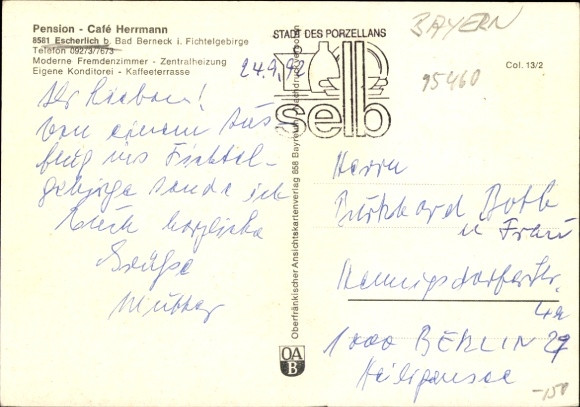 Pension - Café Herrmann
8581 Escherlich b. Bad Berneck i. Fichtelgebirge
Telefon 092/3/7673
Moderne Fremdenzimmer - Zentralheizung
Eigene Konditorei - Kaffeeterrasse
24.9.92
Ihr Lieben!
Von einem Aus-
flug ins Fichtel-
gebirge sende ich
Euch herzliche
Grüße
Mutter
STADT DES PORZELLANS
selb
BAYERN
95460
Col. 13/2
Oberfränkischer Ansichtskartenverlag 858 Bayreuth Nachdruck verboten
OA
B
Herrn
Burkhard Both
u Frau
Hennigsdorferstr.
4a
1000 BERLIN 27
Heiligensee
-150